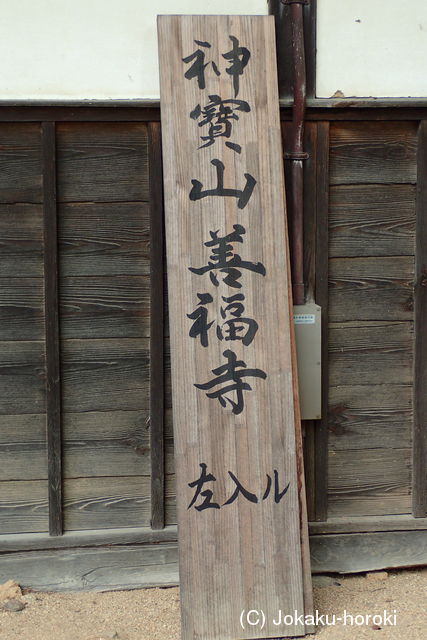 神寳山善福寺
左入ル
(C) Jokaku-horoki